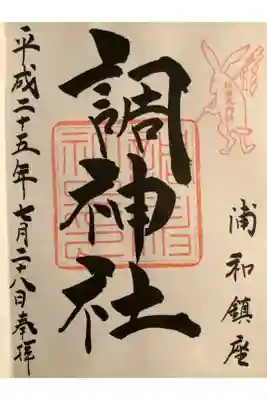 浦和鎮座
調神社
平成二十五年七月二十八日奉拝